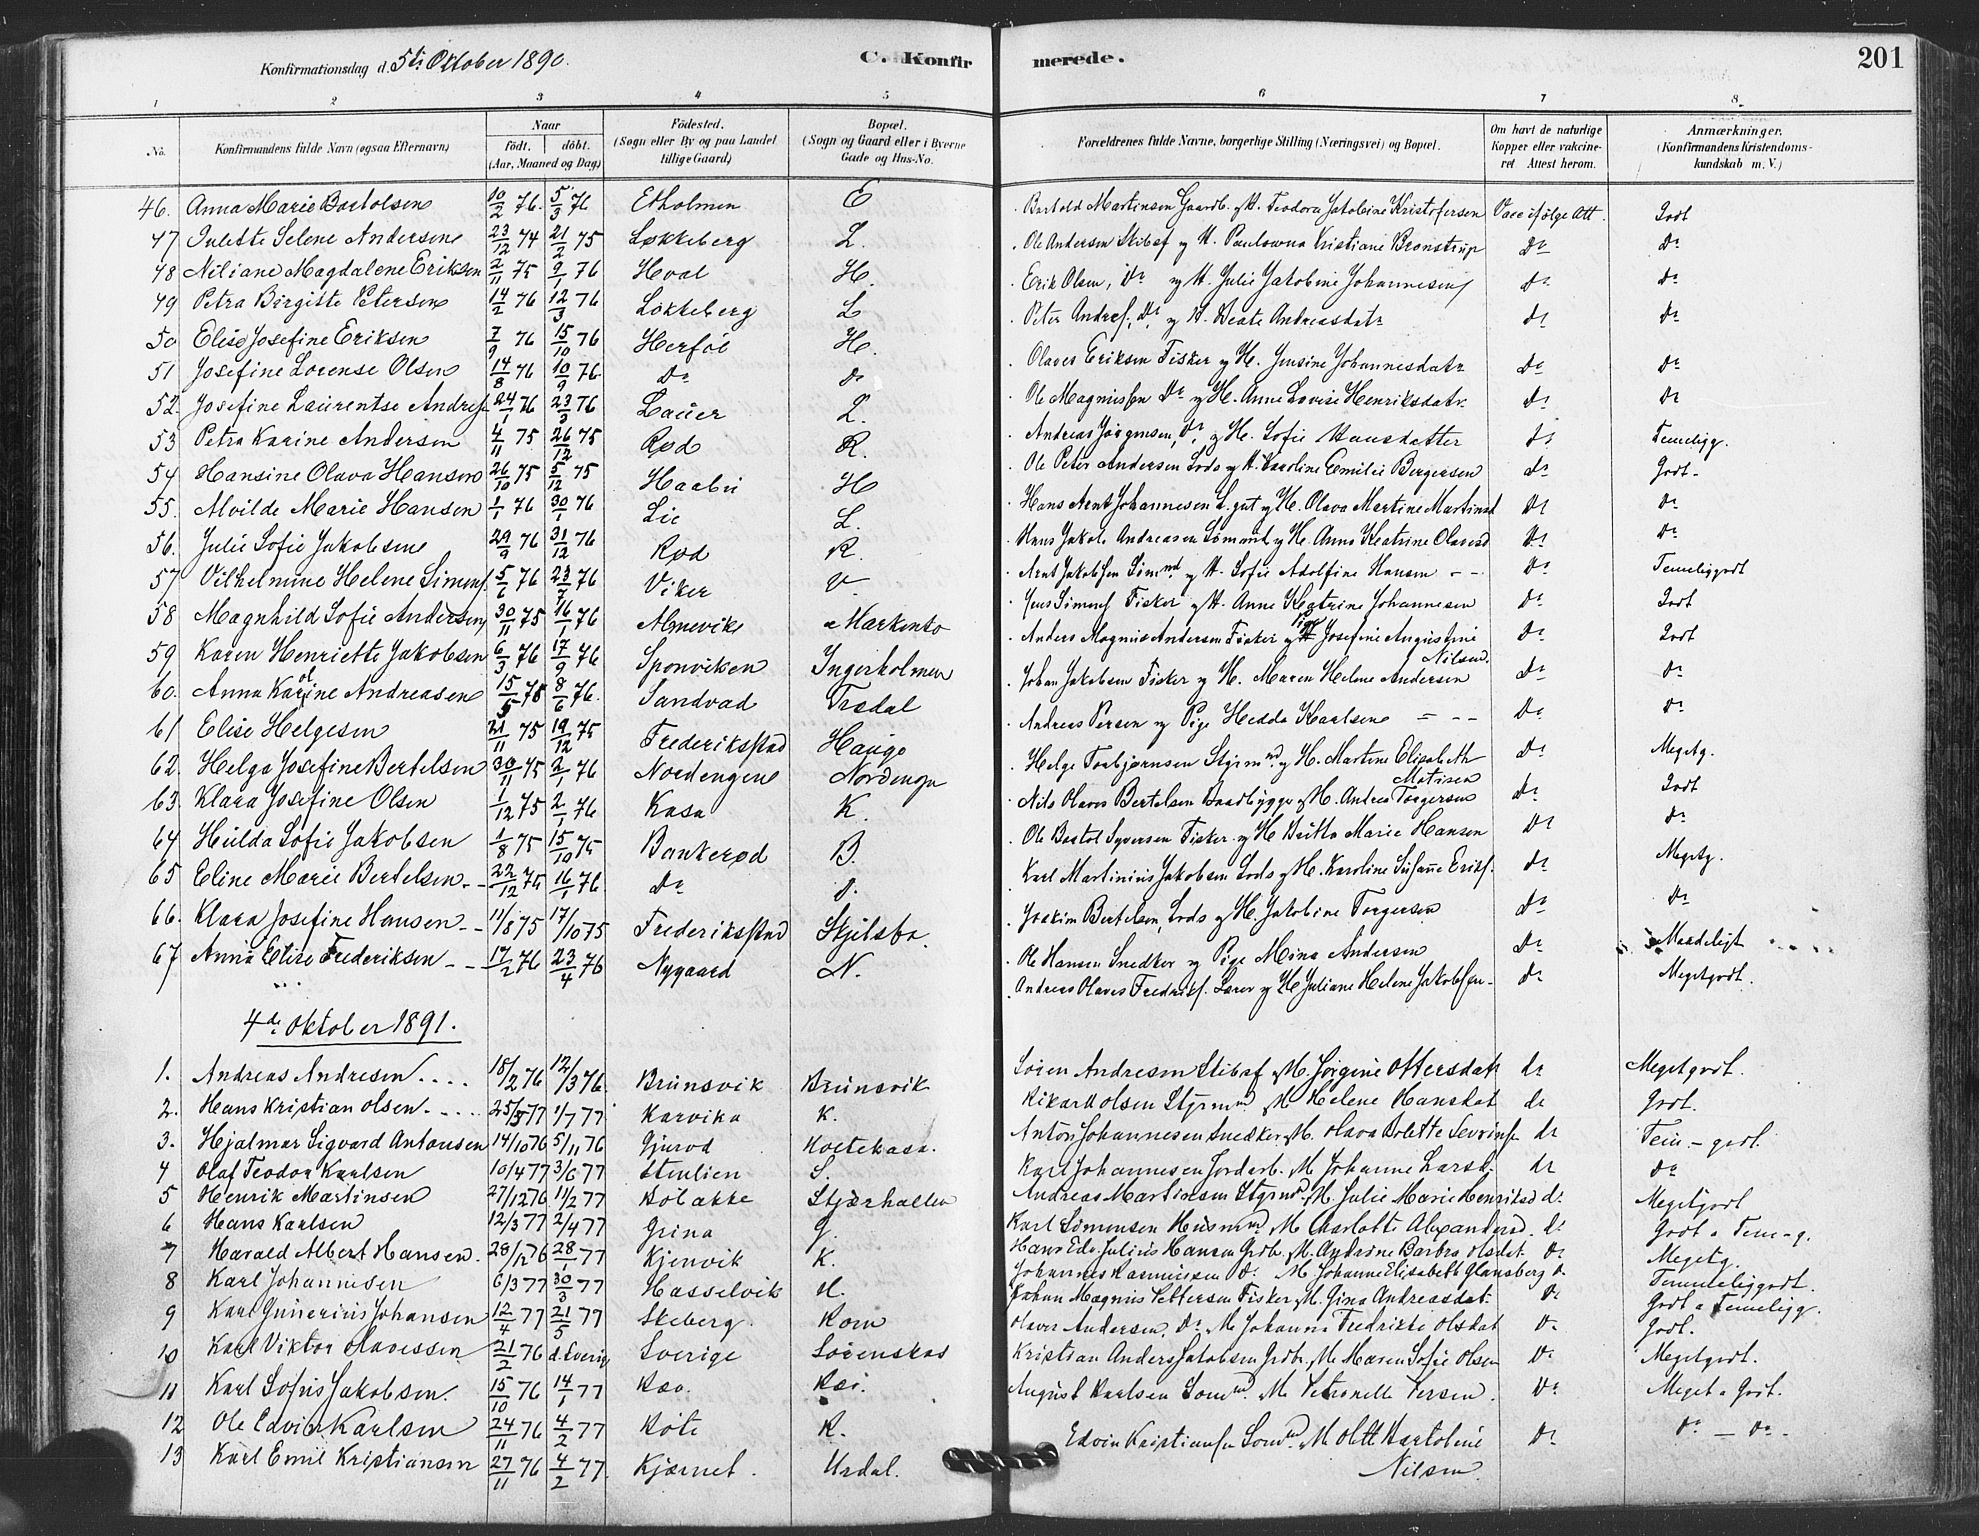 Konfirmationsdag d. 5te Oktober 1890.
C. Konfirmerede.
201
1 2 3 4 5 6 7 8
No.
Konfirmandens fulde Navn (ogsaa Efternavn)
Naar
födt. döbt.
(Aar, Maaned og Dag)
Födested.
(Sogn eller By og paa Landet
tillige Gaard)
Bopæl.
(Sogn og Gaard eller i Byerne
Gade og Hus-No.
Forældrenes fulde Navne, borgerlige Stilling (Næringsvei) og Bopæl.
Om havt de naturlige
Kopper eller vakcine-
ret Attest herom.
Anmærkninger.
(Konfirmandens Kristendoms-
kundskab m. V.)
46. Anna Marie Bartolsen 10/2 76. 5/3 76 Etholmen E Bartold Martinsen Gaardb. og H. Teodora Jakobine Kristofersen Vacc ifølge Att. Godt
47 Julette Selene Andersen 23/12 74 21/2 75 Løkkeberg L. Ole Andersen Skibsf og H. Paulowna Kristiane Bronstrup Do Do
48 Niliane Magdalene Eriksen 2/11 75 9/1 76 Hval H. Erik Olsen, Do og H. Julie Jakobine Johannesen do Do
49 Petra Birgitte Petersen 14/2 76 12/3 76 Løkkeberg L Peter Andres., Do, og H. Beate Andreasdatr do Do
50 Elise Josefine Eriksen 7/9 76 15/10 76 Herføl H. Olaves Eriksen Fisker og H. Jensine Johannesdatr
51 Josefine Lorense Olsen 14/8 76 10/9 76 Do do Ole Magnussen Do og H. Anne Lovise Henriksdatr. do Do
52. Josefine Laurentse Andres. 24/1 76 23/3 76 Lauer L. Andreas Jörgensen, Do, og H. Sofie Hansdatter do Do
53 Petra Karine Andersen 4/11 75 26/12 75 Rød R. Ole Peter Andersen Lods og H. Karoline Emilie Bergersen do Temmelig.
54 Hansine Olava Hansen 26/10 75 5/12 75 Haabu H Hans Arnt Johannesen L.gut og H. Olava Martine Martinsd do Godt-
55. Alvilde Marie Hansen 1/1 76 30/1 76 Lie L. Hans Jakob Andreasen Sømand og H. Anna Katrine Olavesd do do
56. Julie Sofie Jakobsen 29/9 76 31/12 76 Rød R. Arnt Jakobsen Sömnd. og H. Sofie Adolfine Hansen - - do Do
57 Vilhelmine Helene Simens. 5/6 76 23/7 76 Viker V. Jens Simens Fisker og H. Anne Katrine Johannesen Do Temeliggodt
58 Magnhild Sofie Andersen 30/11 75 16/1 76 Apnevike Markento Anders Magnus Andersen Fisker og Josefine Augustine Nilsen. Do Godt
59 Karen Henriette Jakobsen 6/3 76 17/9 76 Sponviken Ingerholmen Johan Jakobsen Fisker og H. Maren Helene Andersen Do Godt
60. Anna Karine Andreasen 15/5 75 8/6 76. Sandvad Trødal Andreas Persen og Pige Hedda Karlsen = - - Do Do
61 Elise Helgesen 21/11 75 19/12 75 Frederiksstad Hauge Helge Torbjørnsen Styrmnd. og H. Martine Elisabeth Matisen Do Megetg.
62. Helga Josefine Bertelsen 30/11 75 2/1 76 Nordengene Nordengn Nils Olaves Bertelsen Baadbygge og H. Andrea Torgersen Do Godt
63. Klara Josefine Olsen 1/12 75 2/1 76 Kasa K. Ole Bastol Syversen Fisker og H Britta Marie Hansen do Do
64 Hulda Sofie Jakobsen 1/8 75 15/10 75 Bankerød B. Karl Martinius Jakobsen Lods og H. Karoline Susanne Eriks. do Megetg.
65 Eline Marie Bertelsen - - 22/12 75 16/1 76. Do do. Joakim Bertelsen, Lods og H. Jakobine Torgersen Do Do
66. Klara Josefine Hansen - - 11/8 75 17/10 75 Frederiksstad Skjelsbo. Ole Hansen Snedker og Pige Mina Andersen Do Maadeligt
67 Anna Elise Frederiksen - - 17/2 76 23/4 76 Nygaard N. Andreas Olaves Fredriks. Lærer og H Juliane Helene Jakobsen - do Megetgodt.
4de Oktober 1891.
1. Andreas Andresen.... 18/2 76 12/3 76. Brunsvik Brunsvik Sören Andresen Skibsf og H. Jørgine Ottersdatr do Megetgodt.
2. Hans Kristian Olsen..... 25/5 77 1/7 77 Karvika K. Rikard Olsen Styrmnd og H Helene Hansdat do Godt.
3. Hjalmar Sigvard Antonsen 14/10 76 5/11 76 Gjurød Holtekasa. Anton Johannesen Snedker og H. Olava Bolette Severins. do Tem-godt.
4 Olaf Teodor Karlsen 10/4 77 3/6 77 Stenlien S. Karl Johannesen Jordarb. og H Johanne Larsd. do Do
5 Henrik Martinsen 27/12 76 11/2 77 Kolakke Stjærhallen Andreas Martinsen Styrmnd. og H. Julie Marie Henriksd do Megetgodt
6 Hans Karlsen 12/3 77 2/4 77 Grina G. Karl Simensen Husmnd og H Charlotte Alexandersd. do Godt a Tem-g.
7 Harald Albert Hansen. 28/12 76 28/1 77 Kjenvik K. Hans Edv. Julius Hansen Grdb. og H. Andrine Barbro Olsdat Do Megetg.
8 Karl Johannesen 6/3 77 30/3 77 Hasselvik H. Johannes Rasmussen Do og H Johanne Elisabeth Glansberg do Temmeliggodt.
9 Karl Gunerius Johansen 12/4 77 21/5 77 Skeberg. Korn Johan Magnus Pettersen Fisker og H. Gina Andreasdat. Do Godt a Temeligg.
10 Karl Viktor Olavessen 21/2 76 d. Sverig Sverige Sörenskas Olaves Andersen, Do og H Johanna Fredrikke Olsdat Do Godt.
11 Karl Sofus Jakobsen. 15/10 76 14/1 77 Røo. Røi. Kristian Anders Jakobsen Grdb. og H. Maren Sofie Olsen Do Megetgodt.
12 Ole Edvin Karlsen 24/11 76 4/2 77 Köte K. August Karlsen Sömnd. og H Petronelle Persen. Do Meget a Godt.
13 Karl Emil Kristiansen 27/11 76 4/2 77. Kjærnet. Urdal. Edvin Kristiansen Sömnd. og H Olett Bartoline Nilsen. Do Do - Do.